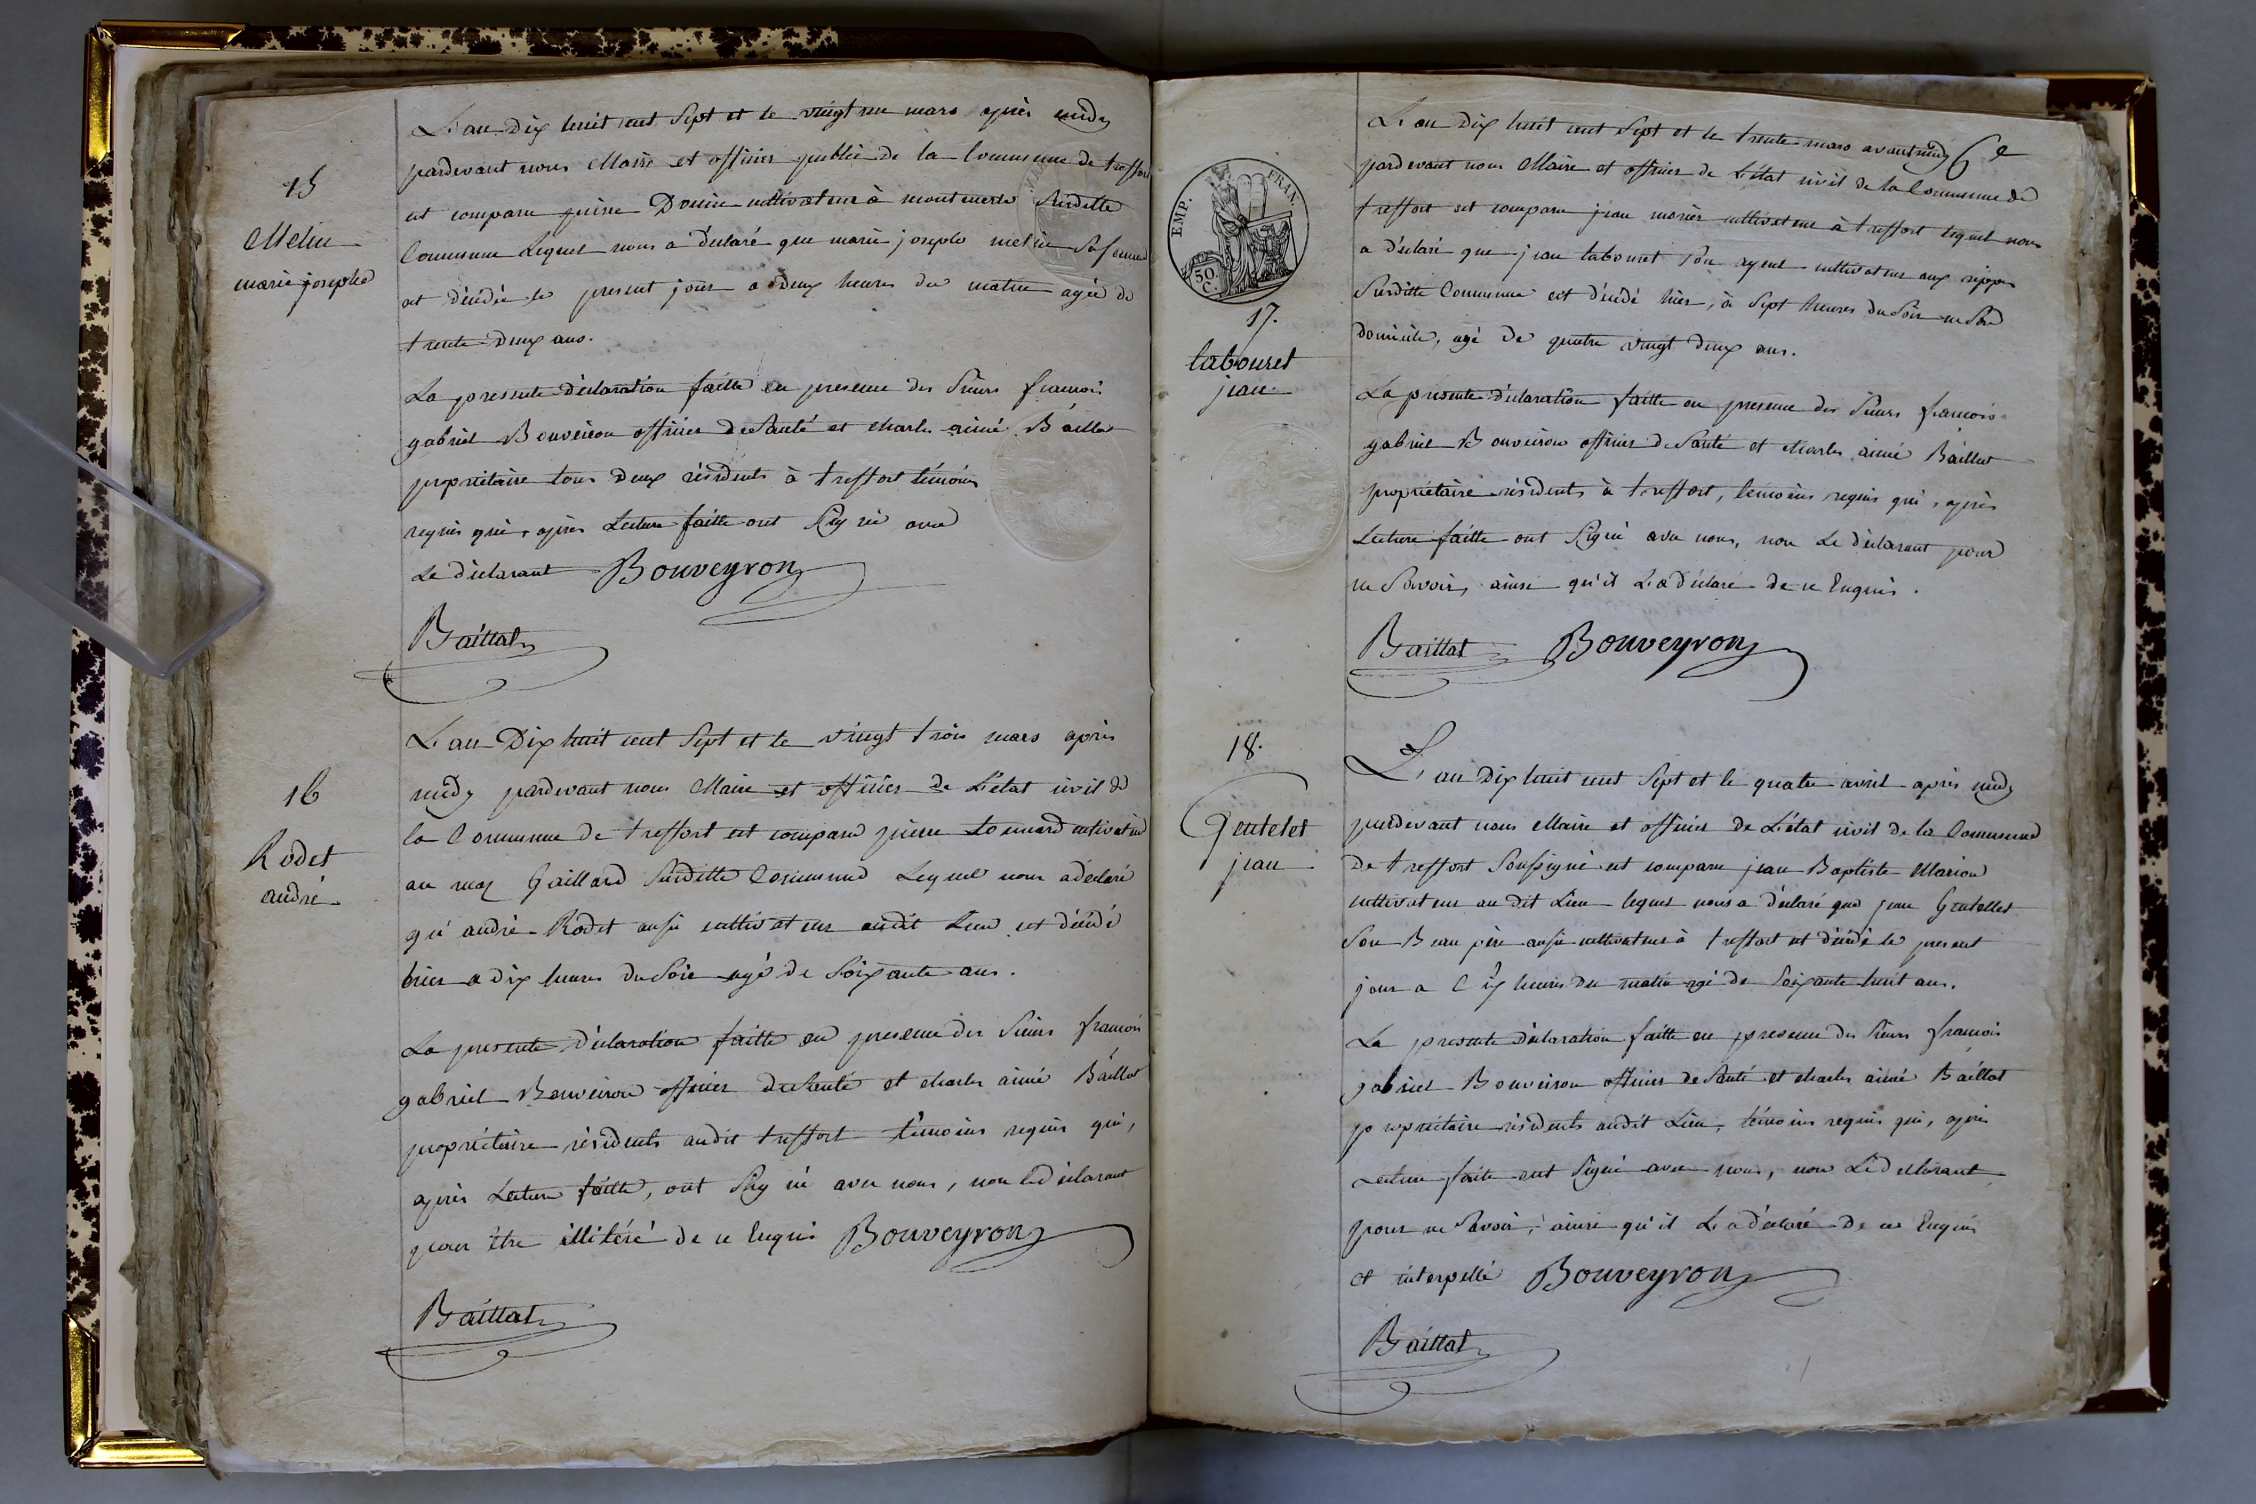 15
Melin
marie josephe
L'an Dix huit cent Sept et le vingt un mars après midy
pardevant nous Maire et officier public de la Commune de treffort
est comparu pierre Donin cultivateur à montmerle Susditte
Commune Lequel nous a déclaré que marie josephe melin Sa femme
est décédée le present jour a deux heures du matin agée de
trente deux ans.
La presente déclaration faitte en presence des Sieurs francois
gabriel Bouveiron officier de Santé et charles aimé Baillat
propriétaire tous deux résidents à treffort témoins
requis qui, après Lecture faitte ont Signé avec
Le déclarant Bouveyron
Baillat
16
Rodet
andré
L'an Dix huit cent Sept et le vingt trois mars après
midy pardevant nous Maire et officier de L'état civil de
la Commune de treffort est comparu pierre cultivateur
au mas Gaillard Susditte Commune Lequel nous a déclaré
qu'andré Rodet aussi cultivateur audit Lieu est décédé
hier a dix heures du Soir agé de Soixante ans.
La presente déclaration faitte en presence des Sieurs francois
gabriel Bouveiron officier de Santé et charles aimé Baillat
propriétaire résidents audit treffort témoins requis qui,
après Lecture faitte, ont Signé avec nous, non Le déclarant
pour être illitéré de ce Enquis Bouveyron
Baillat
6e
EMP. FRAN.
50.
C.
17.
tabouret
jean
L'an Dix huit cent Sept et le trente mars avant midy
pardevant nous Maire et officier de L'état civil de la Commune de
treffort est comparu jean cultivateur à treffort lequel nous
a déclaré que jean tabouret Son ayeul cultivateur aux rippes
Susditte Commune est décédé hier, à Sept heures du Soir en Son
domicile, agé de quatre vingt deux ans.
La présente déclaration faitte en presence des Sieurs francois
gabriel Bouveiron officier de Santé et charles aimé Baillat
propriétaire résidents à treffort, temoins requis qui, après
Lecture faitte ont Signé avec nous, non Le déclarant pour
ne Savoir, ainsi qu'il L'a déclaré de ce Enquis.
Baillat Bouveyron
18.
Gentelet
jean
L'an Dix huit cent Sept et le quatre avril après midy
pardevant nous Maire et officier de L'état civil de la Commune
de treffort Soussigné est comparu jean Baptiste Marion
cultivateur au dit Lieu lequel nous a déclaré que jean Gentellet
Son Beau père aussi cultivateur à treffort est décédé le present
jour a heures du matin agé de Soixante huit ans.
La presente déclaration faitte en presence des Sieurs francois
gabriel Bouveiron officier de Santé et charles aimé Baillat
propriétaire résidents audit Lieu, témoins requis qui, après
Lecture faite ont Signé avec nous, non Le déclarant
pour ne Savoir, ainsi qu'il L'a déclaré de ce Enquis
et interpellé Bouveyron
Baillat